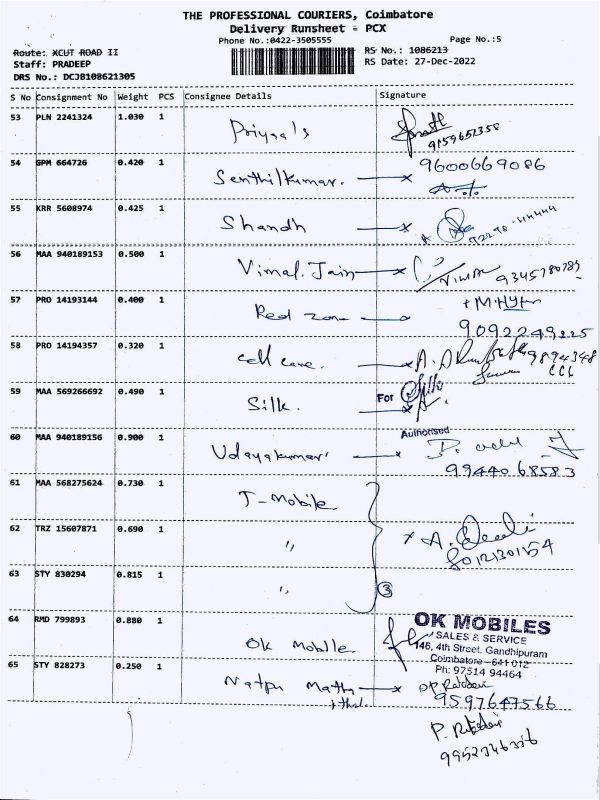 THE PROFESSIONAL COURIERS, Coimbatore
Delivery Runsheet - PCX
Phone No.:0422-3505555 Page No.:5
Route: XCUT ROAD II RS No.: 1086213
Staff: PRADEEP RS Date: 27-Dec-2022
DRS No.: DCJB108621305
S No Consignment No Weight PCS Consignee Details Signature
53 PLN 2241324 1.030 1 Priyaa's
9159651358
54 GPM 664726 0.420 1 Senthilkumar. 9600669086
55 KRR 5608974 0.425 1 Shandh
56 MAA 940189153 0.500 1 Vimal. Jain VIMAL 9345780789
57 PRO 14193144 0.400 1 Red zone
9092249225
58 PRO 14194357 0.320 1 Cell care. 9894348
59 MAA 569266692 0.490 1 Silk. For
Authorised
60 MAA 940189156 0.900 1 Udayakumar
9944068583
61 MAA 568275624 0.730 1 T-Mobile
62 TRZ 15607871 0.690 1 "
8012130154
63 STY 830294 0.815 1 "
3
64 RMD 799893 0.880 1 Ok Mobile OK MOBILES
SALES & SERVICE
146, 4th Street, Gandhipuram
Coimbatore - 641 012
Ph: 97514 94464
65 STY 828273 0.250 1 Natpu
9597647566
9952346356